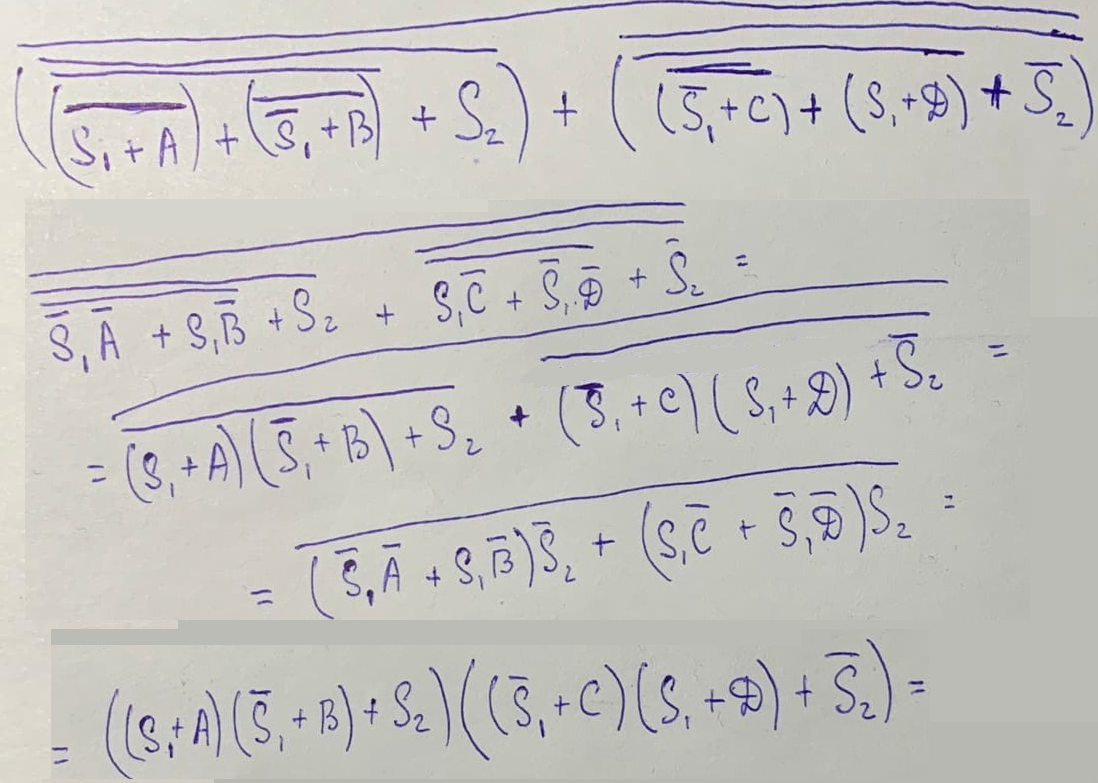 $\overline{\overline{(\overline{\overline{(\overline{S_1 + A}) + (\overline{\overline{S}_1 + B})} + S_2}) + (\overline{\overline{\overline{(\overline{\overline{S}_1 + C}) + (S_1 + D)} + \overline{S}_2}})}}$
$\overline{\overline{\overline{\overline{\overline{S}_1 \overline{A} + S_1 \overline{B}} + S_2} + \overline{\overline{S_1 \overline{C} + \overline{S}_1 \overline{D}} + \overline{S}_2}}} =$
$= \overline{\overline{(S_1 + A)(\overline{S}_1 + B) + S_2} + \overline{(\overline{S}_1 + C)(S_1 + D) + \overline{S}_2}} =$
$= \overline{(\overline{S}_1 \overline{A} + S_1 \overline{B})\overline{S}_2 + (S_1 \overline{C} + \overline{S}_1 \overline{D})S_2} =$
$= ((S_1 + A)(\overline{S}_1 + B) + S_2)((\overline{S}_1 + C)(S_1 + D) + \overline{S}_2) =$